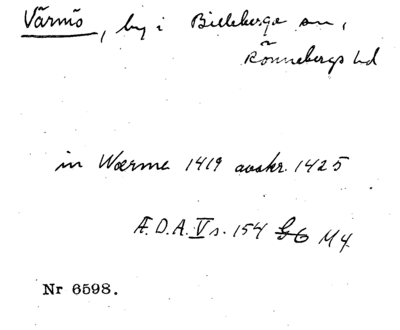 Värmö, by i Billeberga sn,
Rönnebergs hd
in Wærme 1419 avskr. 1425
Æ.D.A. V s. 154 M 4.
Nr 6598.